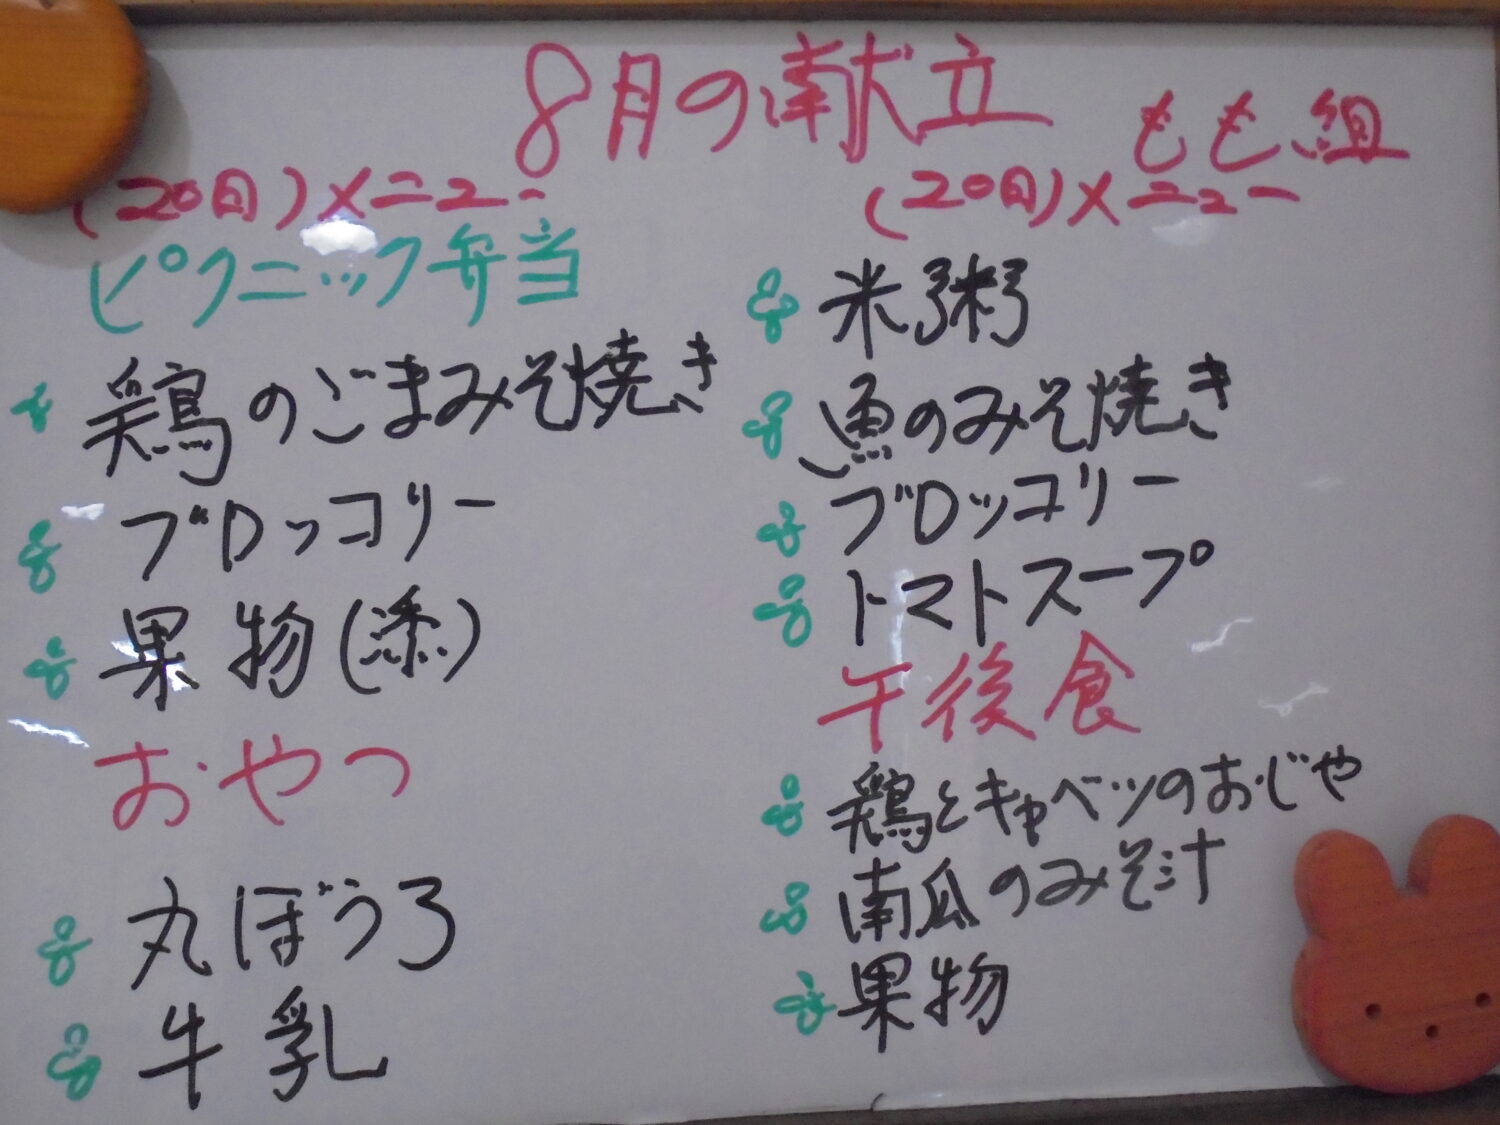 8月の献立
(20日)メニュー
ピクニック弁当
鶏のごまみそ焼き
ブロッコリー
果物()
おやつ
丸ぼうろ
牛乳
もも組
(20日)メニュー
米粥
魚のみそ焼き
ブロッコリー
トマトスープ
午後食
鶏とキャベツのおじや
南瓜のみそ汁
果物